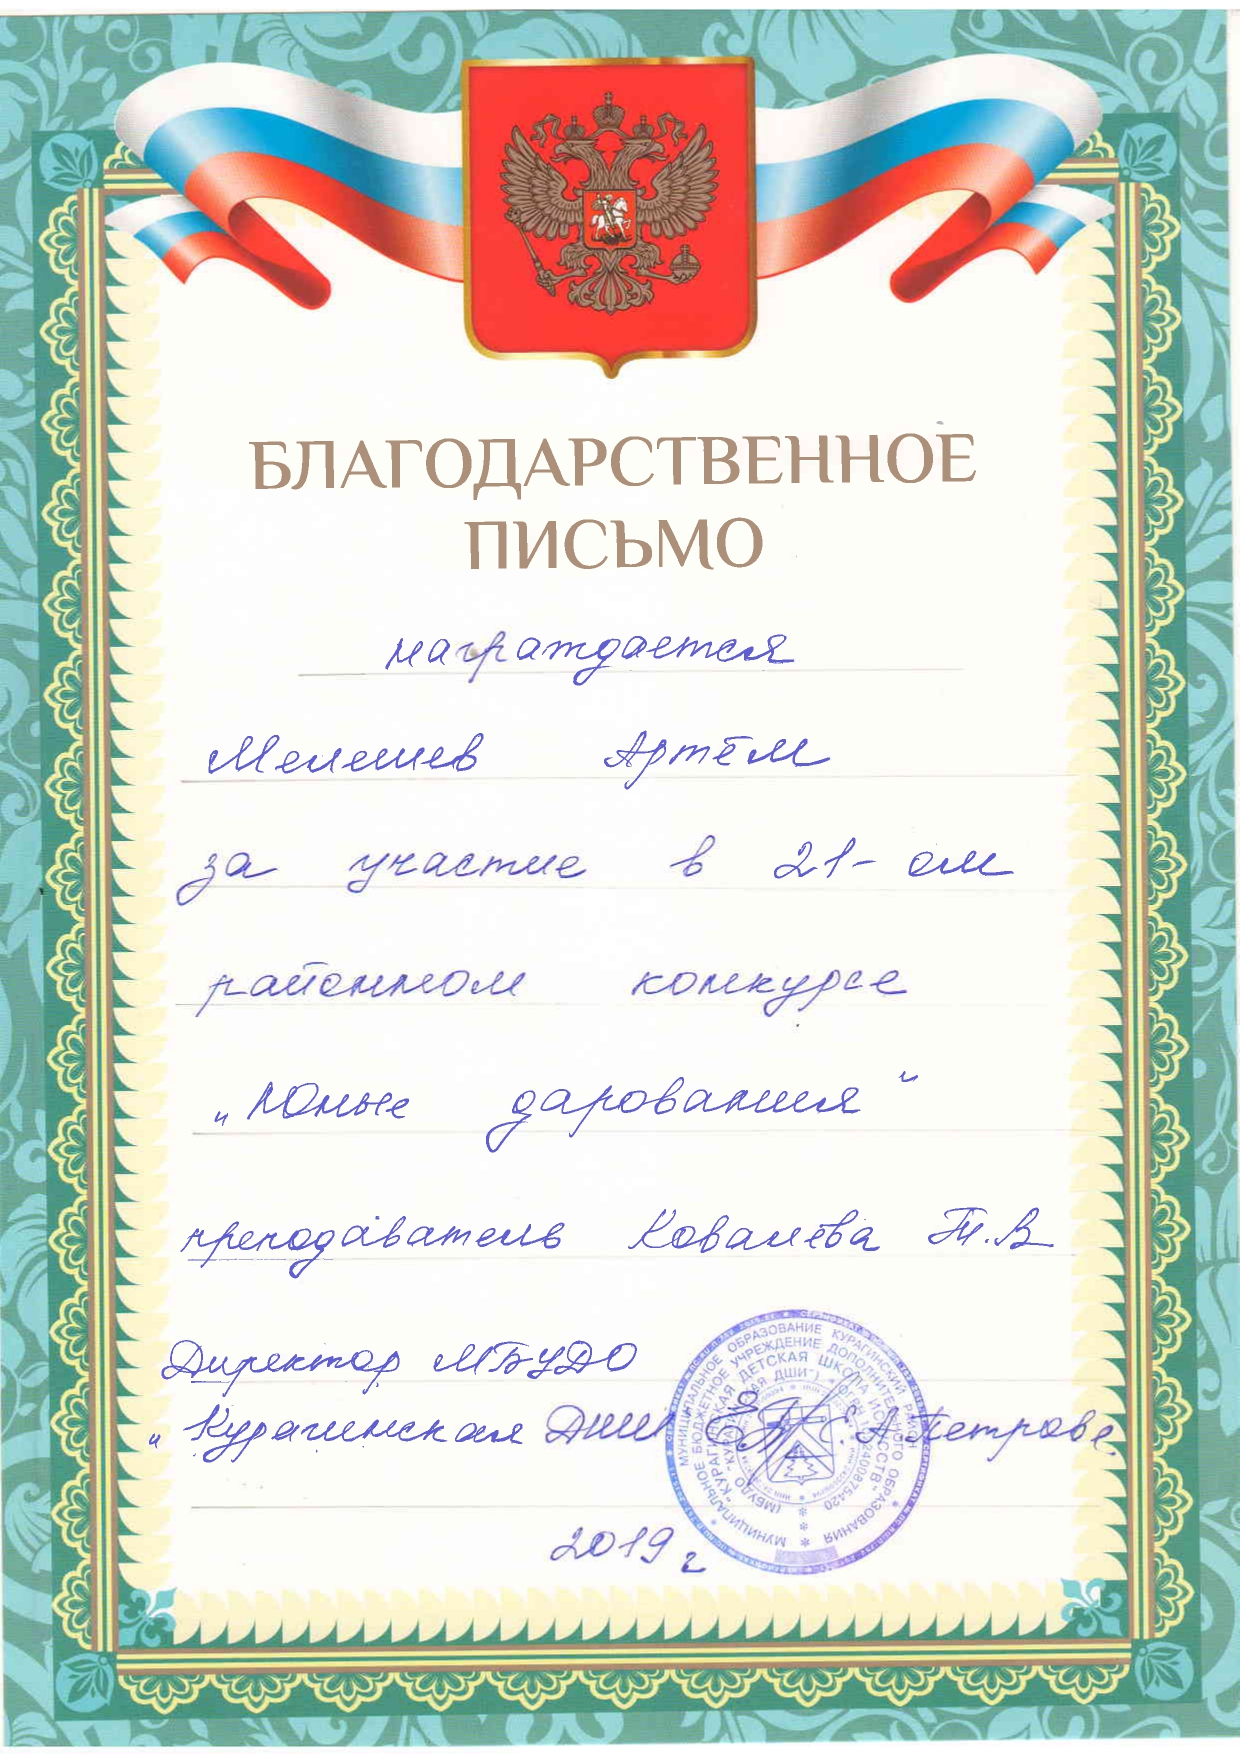 БЛАГОДАРСТВЕННОЕ
ПИСЬМО
награждается
Мелешев Артём
за участие в 21-ом
районном конкурсе
„Юные дарования“
преподаватель Ковалёва Т.В
Директор МБУДО
„Курагинская ДШИ" С.А.Петрова
2019 г
МУНИЦИПАЛЬНОЕ ОБРАЗОВАНИЕ КУРАГИНСКИЙ РАЙОН
МУНИЦИПАЛЬНОЕ БЮДЖЕТНОЕ УЧРЕЖДЕНИЕ ДОПОЛНИТЕЛЬНОГО ОБРАЗОВАНИЯ
"КУРАГИНСКАЯ ДЕТСКАЯ ШКОЛА ИСКУССТВ"